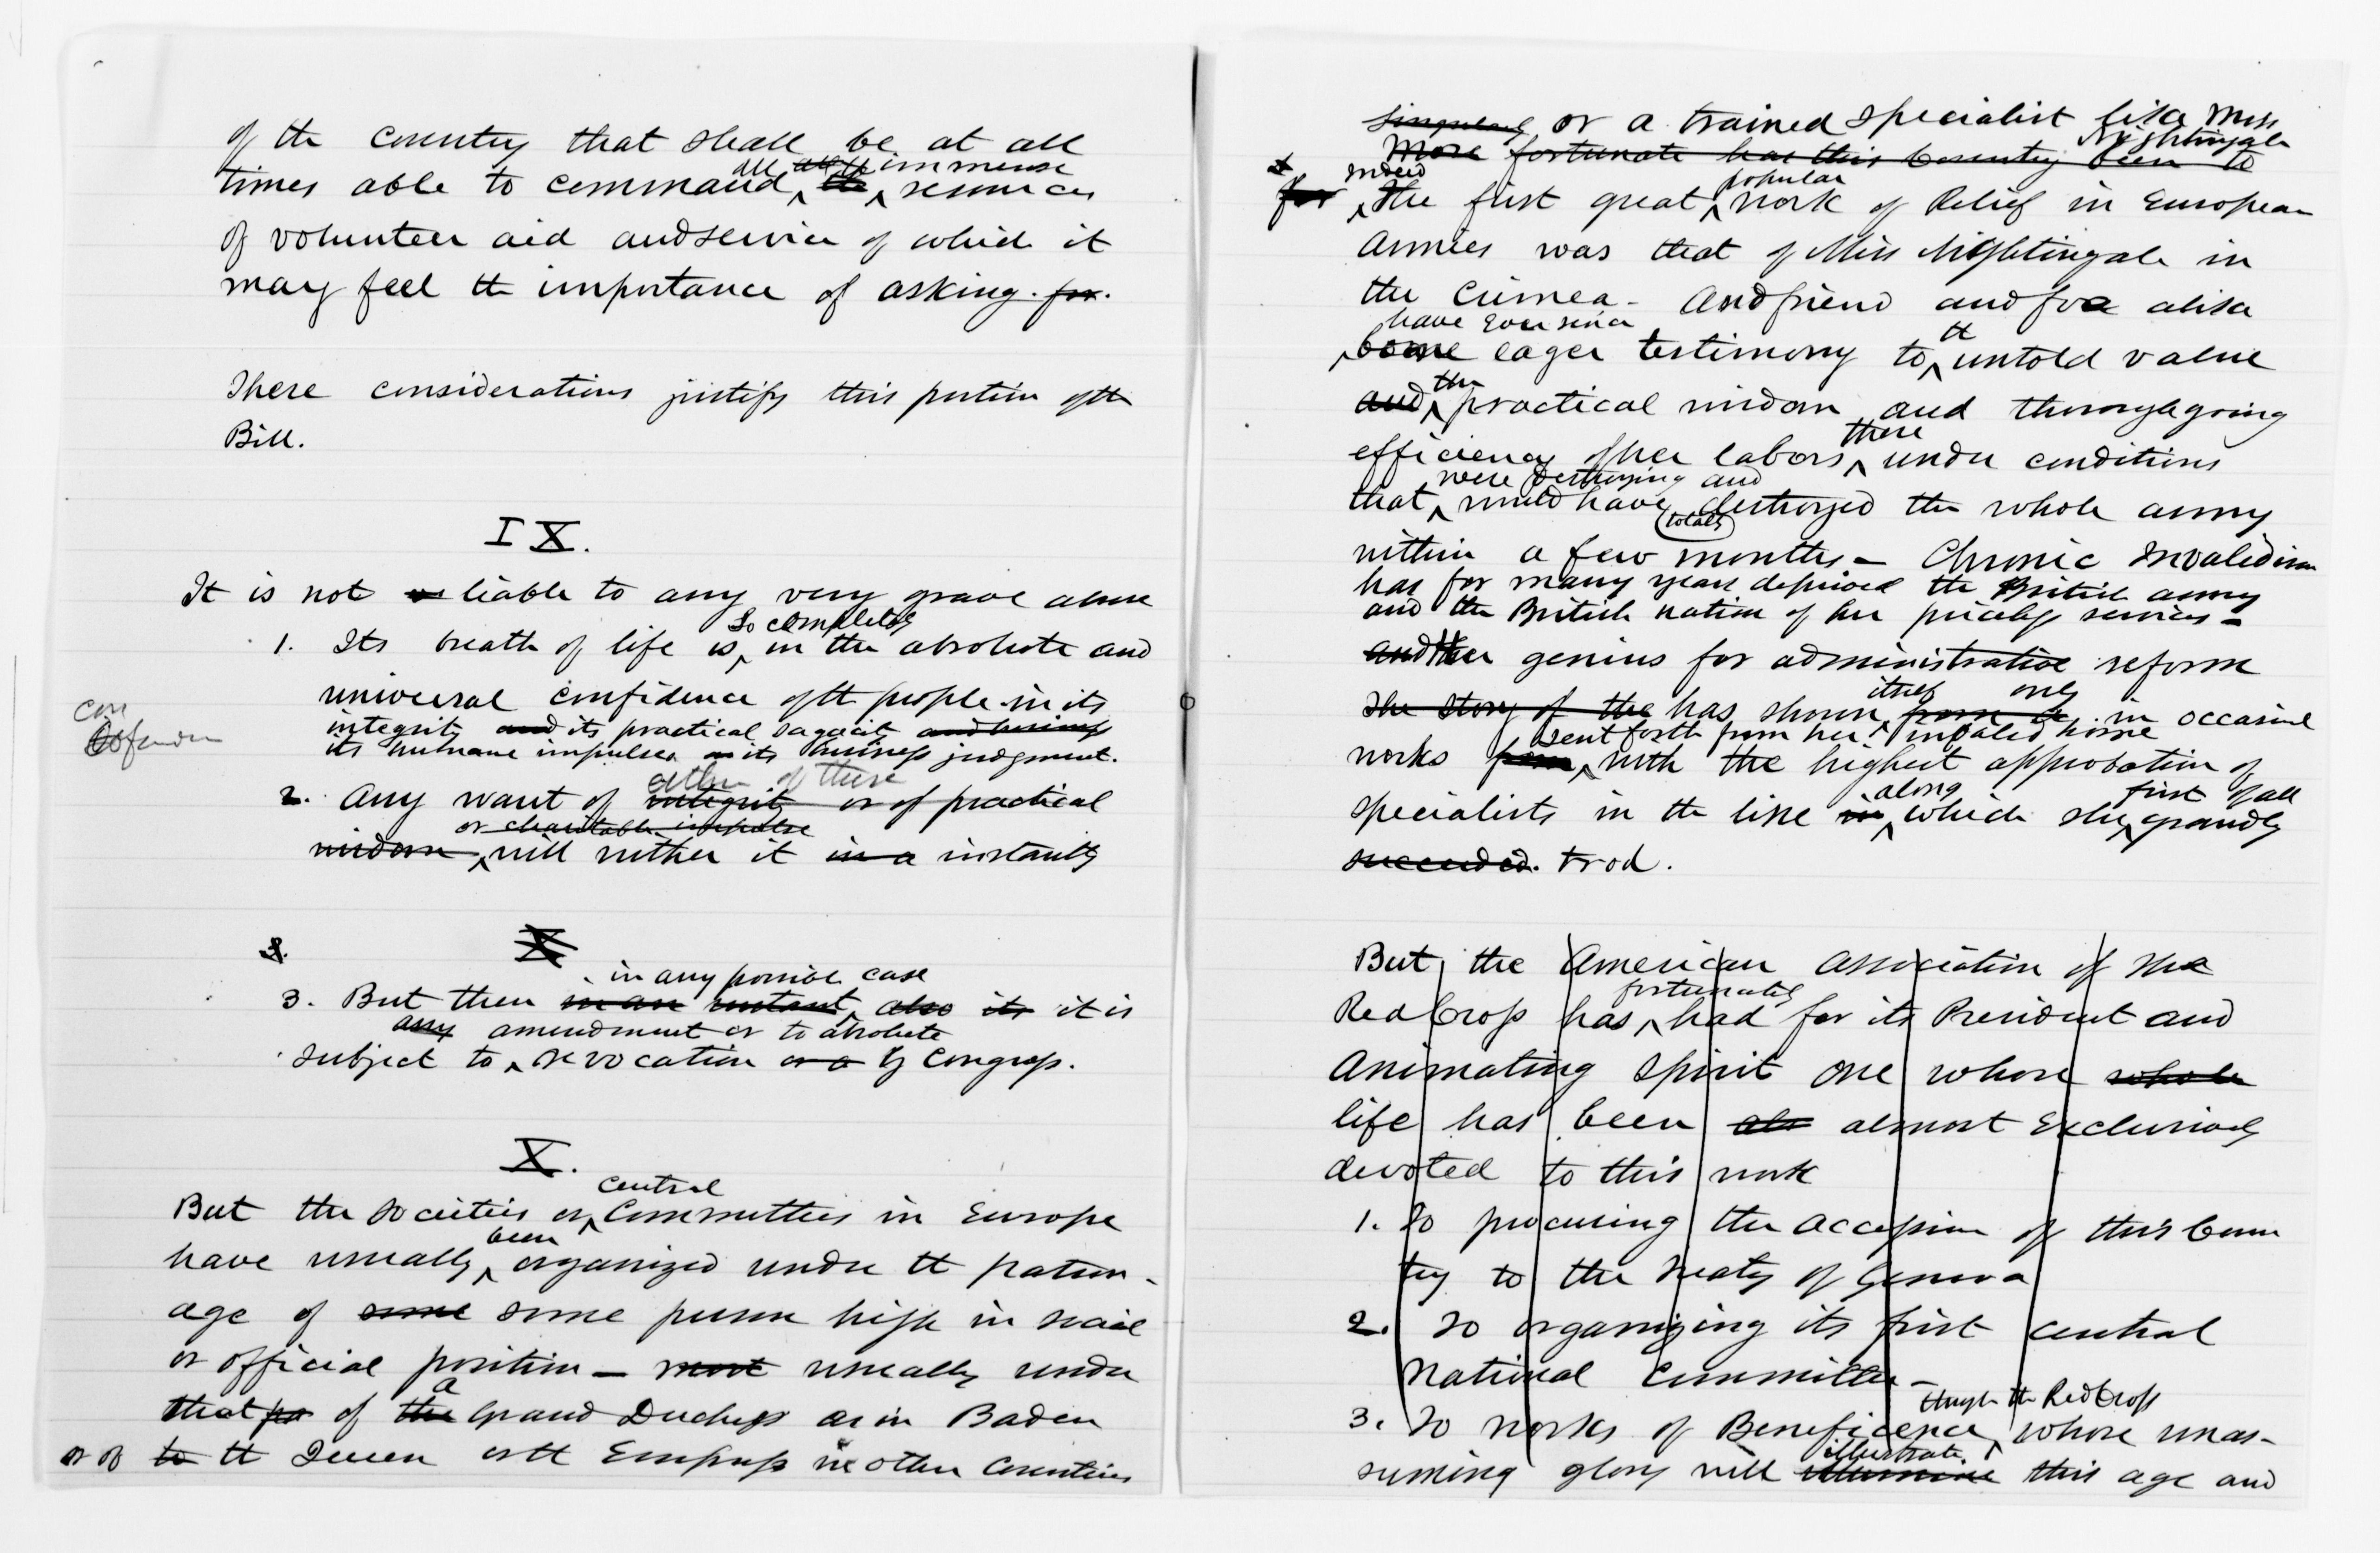 of the Country that shall be at all
all all the immense
times able to command, the resources
of volunteer aid and service of which it
may feel the importance of asking. for.
These considerations justify this portion of the
Bill.
IX.
It is not liable to any very grave abuse
so completely
1. Its breath of life is in the absolute and
universal confidence of the people in its
integrity and its practical sagacity and business
its humane impulses its business judgment.
either of these
2. Any want of integrity or of practical
or charitable impulse
wisdom, will wither it in a instantly
X
in any possible case
3. But then in an instant, also its it is
any amendment or to absolute
subject to revocation or a by Congress.
X.
central
But the societies or Committees in Europe
been
have usually organized under tt patron-
age of some some person high in social
or official position — most usually under
a
that of the Grand Duchess as in Baden
or of to tt Queen or tt Empress in other Countries
singularly or a trained specialist like Miss
Nightingale
More fortunate has this Country been to
Indeed popular
for The first great work of Relief in European
Armies was that of Miss Nightingale in
the Crimea - And friend and foe alike
have ever since tt
bore eager testimony to untold value
the
and practical wisdom and thoroughgoing
there
efficiency of her labors under conditions
were destroying and
that would have destroyed the whole army
totally
within a few months — Chronic Invalidism
has for many years deprived the British army
and the British nation of her priceless services —
and Her genius for administrative reform
itself only
The story of the has shown from a in occasional
sent forth from her invalid home
works from with the highest approbation of
along first of all
specialists in the line in which she grandly
succeeded. trod.
But the American Association of the
fortunately
Red Cross has had for its President and
Animating spirit one whose whole
life has been als almost exclusively
devoted to this work
1. To procuring the accession of this Coun
try to the Treaty of Geneva
2. To organizing its first central
National Committee —
through the Red Cross
3. To works of Beneficence, whose unas-
illustrate
suming glory will illumine this age and